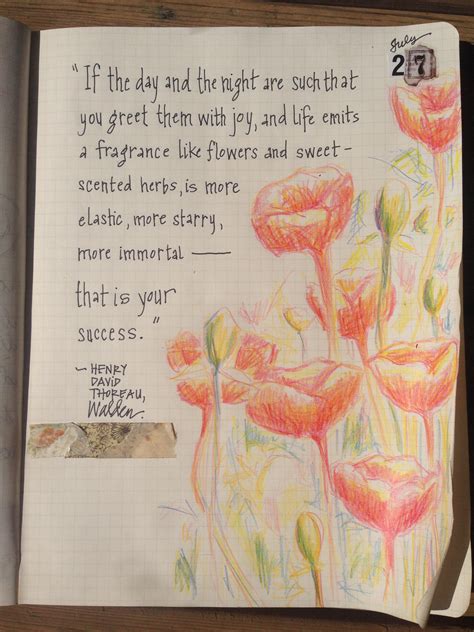 July
27
"If the day and the night are such that
you greet them with joy, and life emits
a fragrance like flowers and sweet-
scented herbs, is more
elastic, more starry,
more immortal ——
that is your
success."
~ HENRY
DAVID
THOREAU,
Walden.